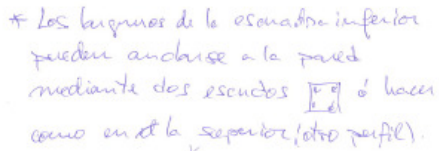 * Los largueros de la escuadra inferior
pueden anclarse a la pared
mediante dos escudos ó hacer
como en la superior (otro perfil).